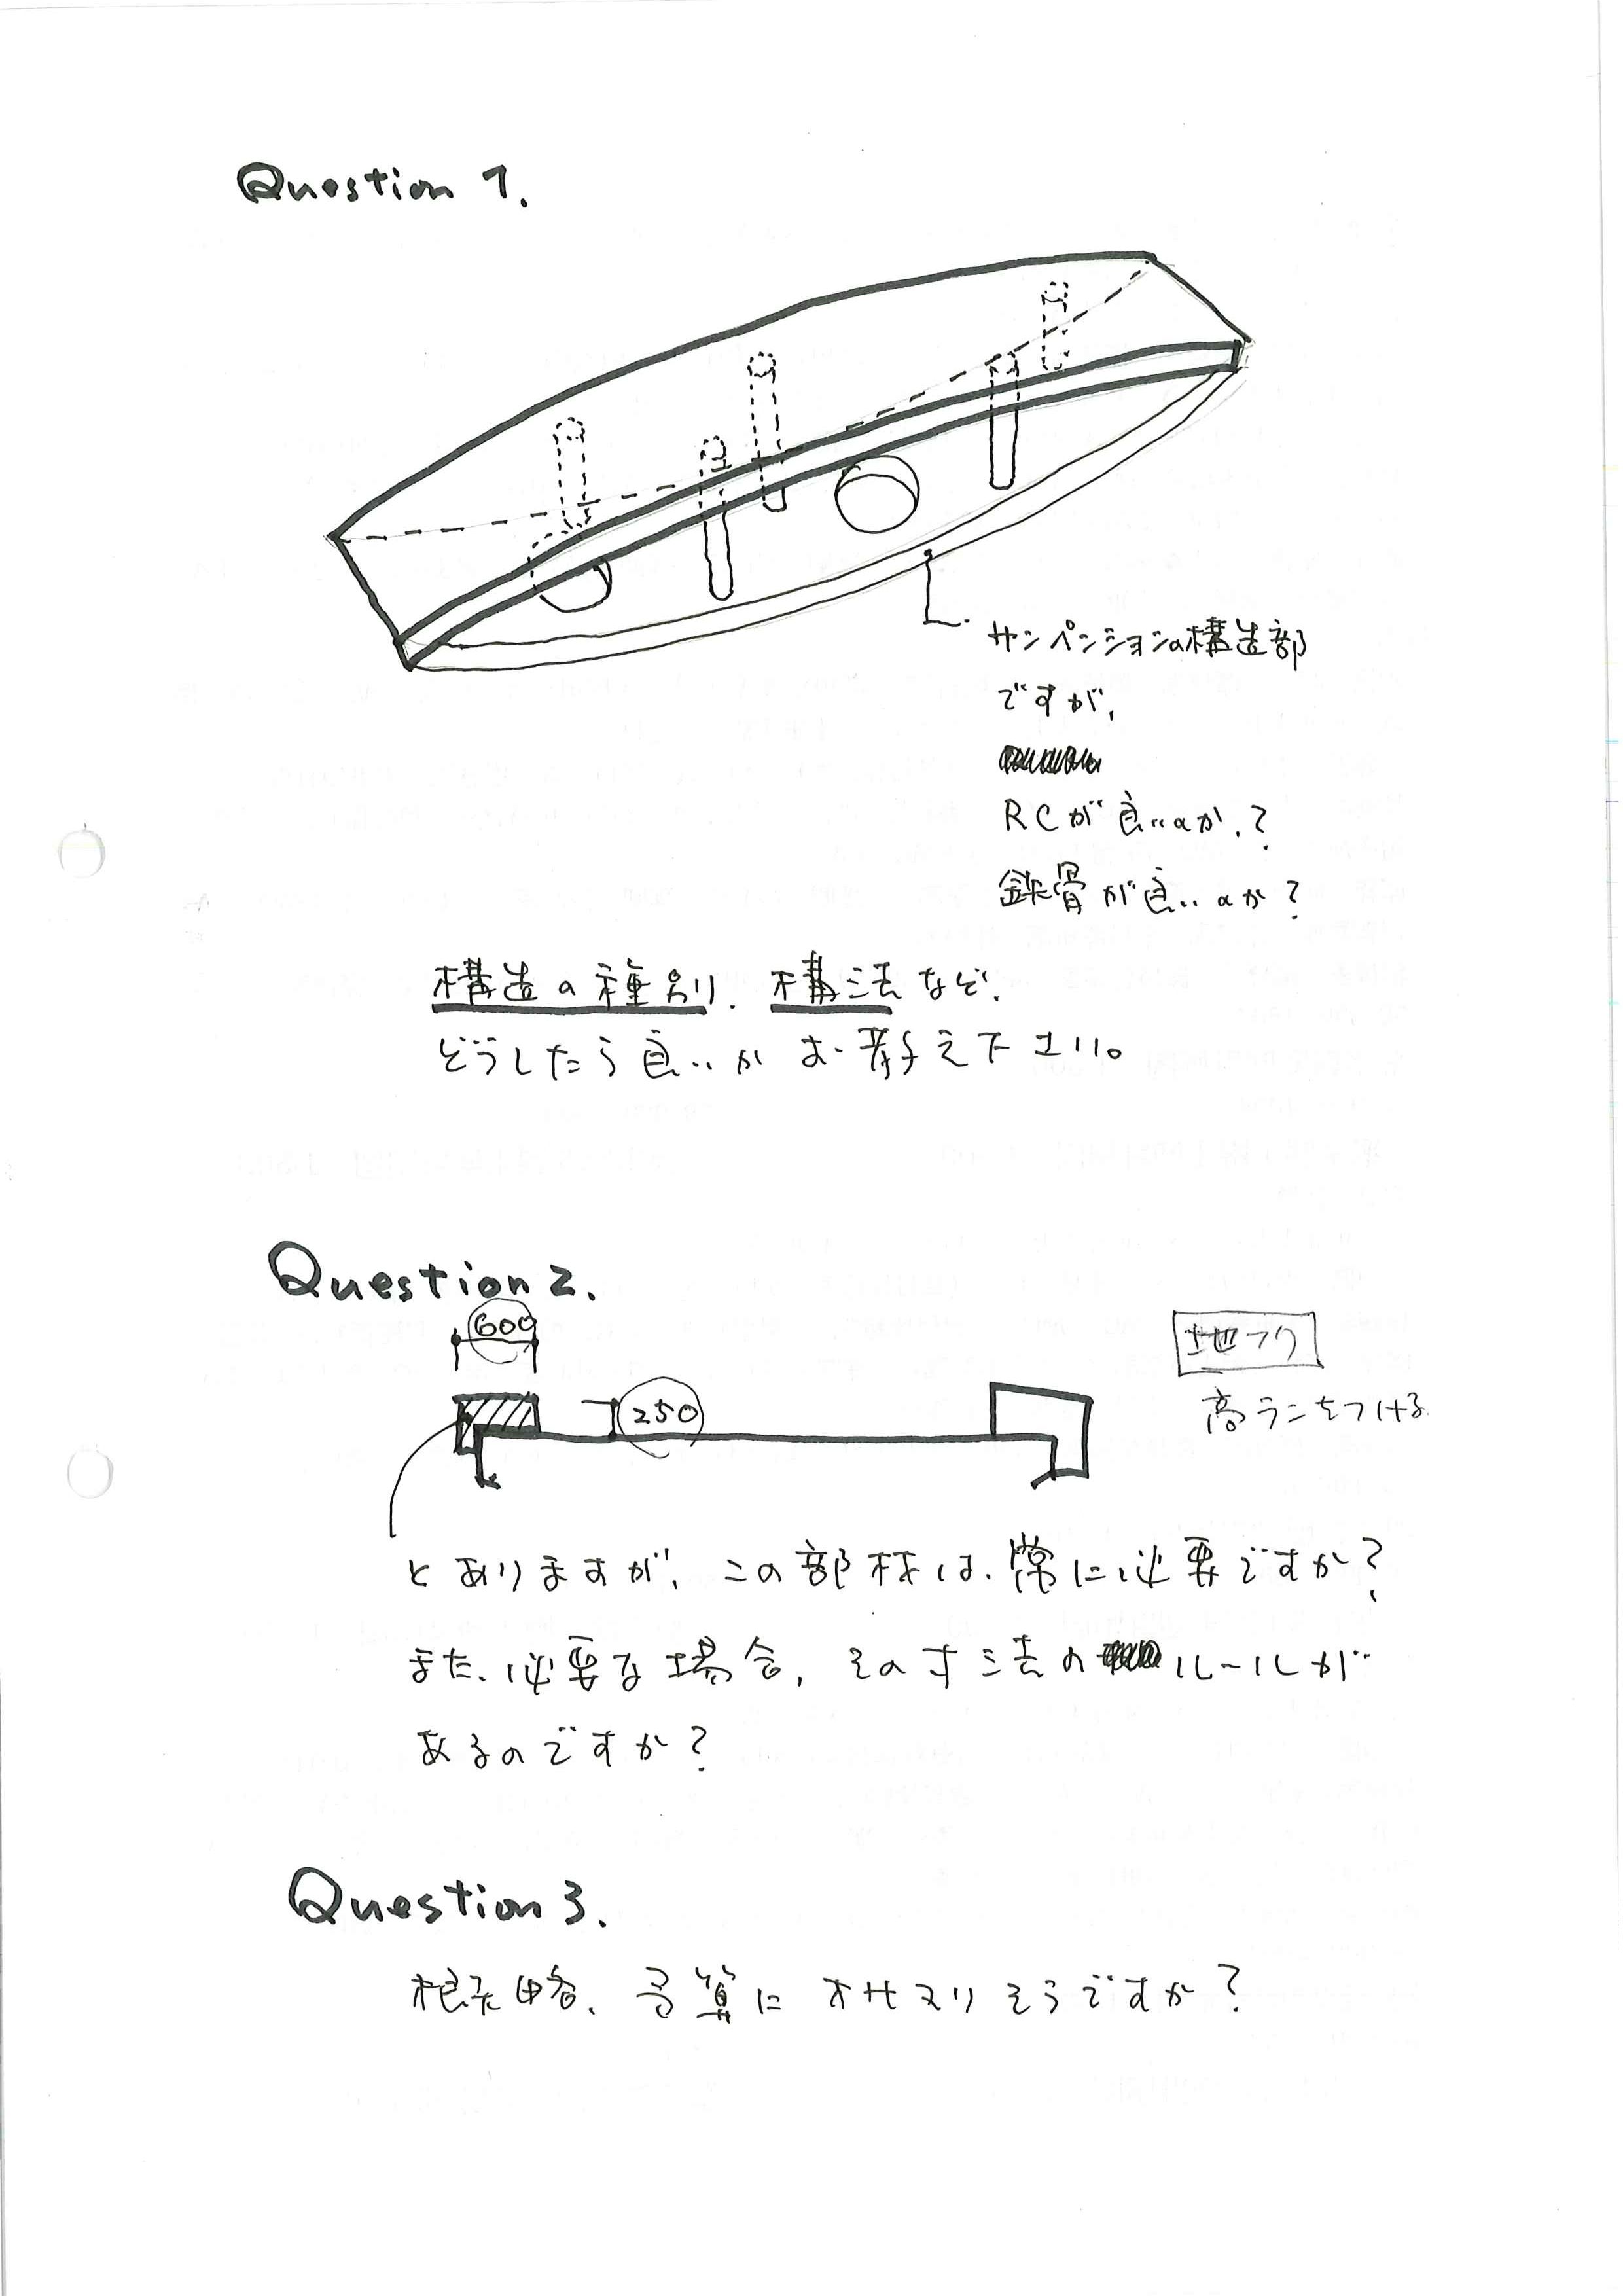 Question 1.
サンペンションの構造部
ですが、
RCが良いのか、?
鉄骨が良いのか?
構造の種別、構法など、
どうしたら良いか お考え下さい。
Question 2.
600
250
地フク
高ランをつける
とありますが、この部材は、常に必要ですか?
また、必要な場合、その寸法のルールが
あるのですか?
Question 3.
概略、予算に オサマリそうですか?